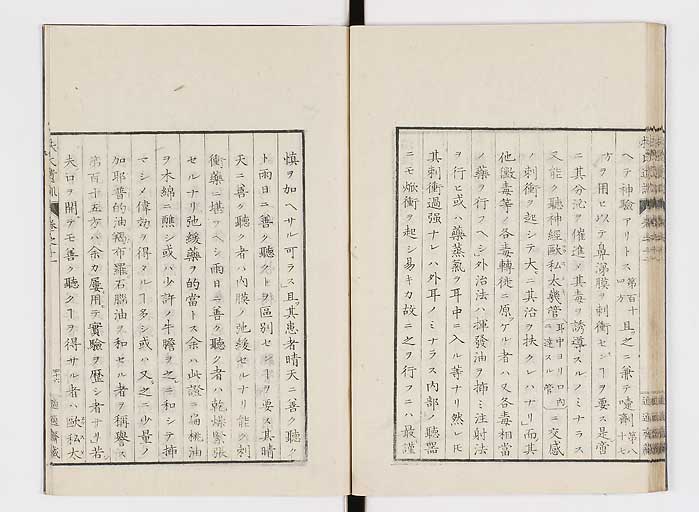 ヘテ神驗アリトス第百十四方且之ニ兼テ嚏劑第八十七
方ヲ用ヒ以テ鼻涕膜ヲ刺衝セシヿヲ要ス是啻
ニ其分泌ヲ催進メ其毒ヲ誘導スルノミナラス
又能ク聽神經歐私太幾管耳中ヨリ口内ニ達スル管ニ交感
ノ刺衝ヲ起シテ大ニ其治ヲ扶クレハナリ而其
他黴毒等ノ各毒轉徙ニ原ツケル者ハ又各毒相當
ノ藥ヲ行フヘシ外治法ハ揮發油ヲ插ミ注射法
ヲ行ヒ或ハ藥蒸氣ヲ耳中ニ入ル等ナリ然レ𪜈
其刺衝過强ナレハ外耳ノミナラス内部ノ聽器
ニモ焮衝ヲ起シ易キカ故ニ之ヲ行フニハ最謹
愼ヲ加ヘサル可ラス且其患者晴天ニ善ク聽ク
ト雨日ニ善ク聽クトヲ區別セシヿヲ要ス其晴
天ニ善ク聽ク者ハ内膜ノ弛緩セルナリ能ク刺
衝藥ニ堪フヘシ雨日ニ善ク聽ク者ハ乾燥緊張
セルナリ弛緩藥ヲ的當トス余ハ此證ニ扁桃油
ヲ木綿ニ蘸シ或ハ少許ノ牛膽ヲ之ニ和シテ插
マシメ偉効ヲ得タルヿ多シ或ハ又之ニ少量ノ
加耶普的油羯布羅石腦油ヲ和セル者ヲ稱譽ス
第百十五方ハ余カ屢用テ實驗ヲ歷シ者ナリ若
夫口ヲ開テモ善ク聽クヿヲ得サル者ハ歐私太
卷之十一
四十六
適適齋藏